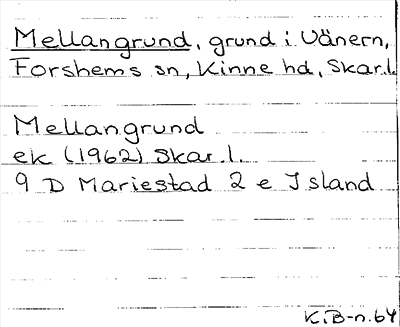 Mellangrund, grund i Vänern,
Forshems sn, Kinne hd, Skar.l.
Mellangrund
ek (1962) Skar.l.
9 D Mariestad 2 e Island
K.B-n.64